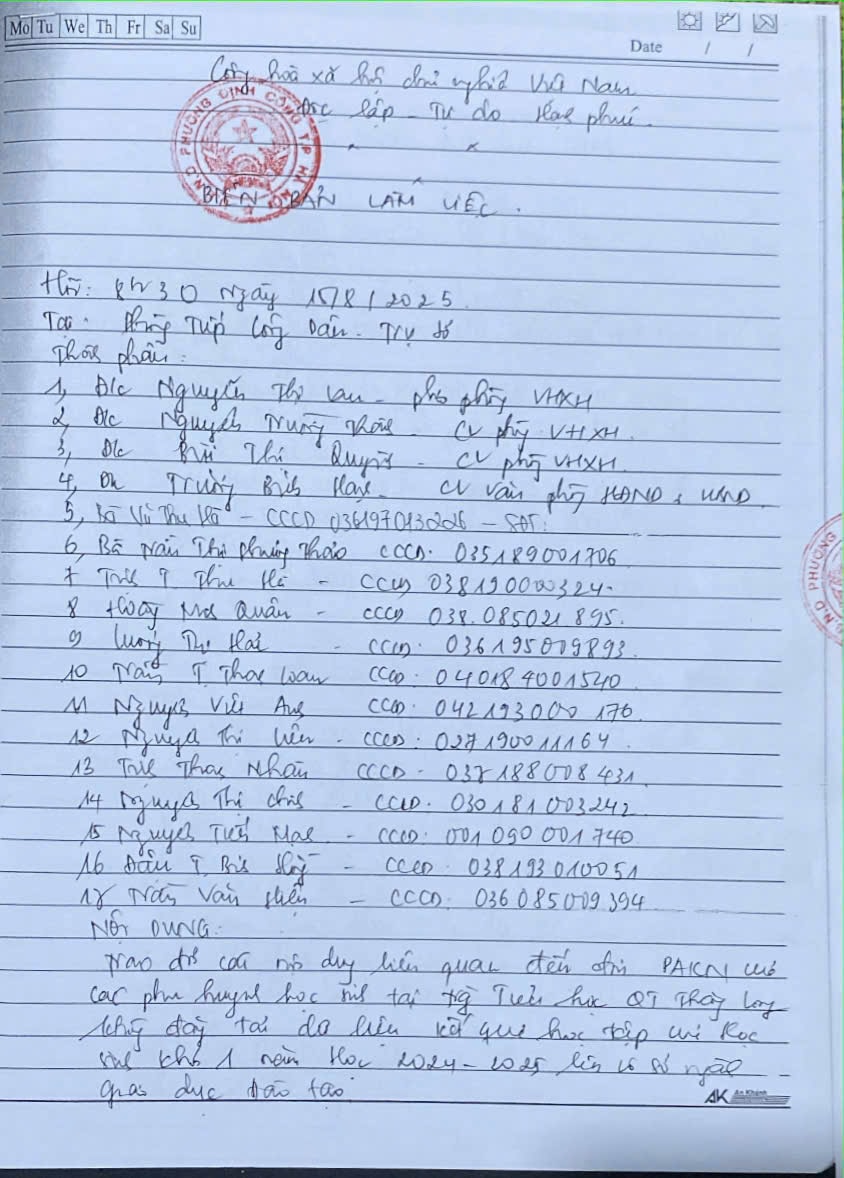 Mo Tu We Th Fr Sa Su
Date / /
Cộng hoà xã hội chủ nghĩa Việt Nam
Độc lập - Tự do Hạnh phúc.
BIÊN BẢN LÀM VIỆC.
Hồi: 8h30 Ngày 15/8/2025
Tại: Phòng Tiếp Công Dân. Trụ sở
Thành phần:
1, Đ/c Nguyễn Thị Lan - phó phòng VHXH
2, Đ/c Nguyễn Trường - CV phòng VHXH.
3, Đ/c Bùi Thị - CV phòng VHXH.
4, Trương Bích Hạnh - CV Văn phòng HĐND & UBND.
5, Bà Vũ Thu Hà - CCCD 036197013226 - SĐT:
6, Bà Trần Thị Phương Thảo CCCD. 035189001706
7 Trịnh T Thu Hà - CCCD 038190000324.
8 Hoàng Quân - CCCD 038.085021895.
9 Lương Thị Hải - CCCD: 036195009893
10 Trần T Thanh Loan CCCD: 040184001540
11 Nguyễn Việt Anh CCCD: 042193000176
12 Nguyễn Thị Liên - CCCD: 027190011164.
13 Trịnh Thanh Nhàn CCCD - 037188008431.
14 Nguyễn Thị - CCCD. 030181003242
15 Nguyễn Tiến - CCCD: 001090001740
16 Đậu T. Bích Hồng - CCCD. 038193010051
17 Trần Văn Hiến - CCCD. 036085009394
NỘI DUNG:
Trao đổi các nội dung liên quan đến đơn PAKN của
các phụ huynh học sinh tại trg Tiểu học QT Thăng Long
không đăng tải dữ liệu kết quả học tập của học
sinh khối 1 năm học 2024-2025 lên cơ sở ngành
giáo dục đào tạo
AK An Khánh